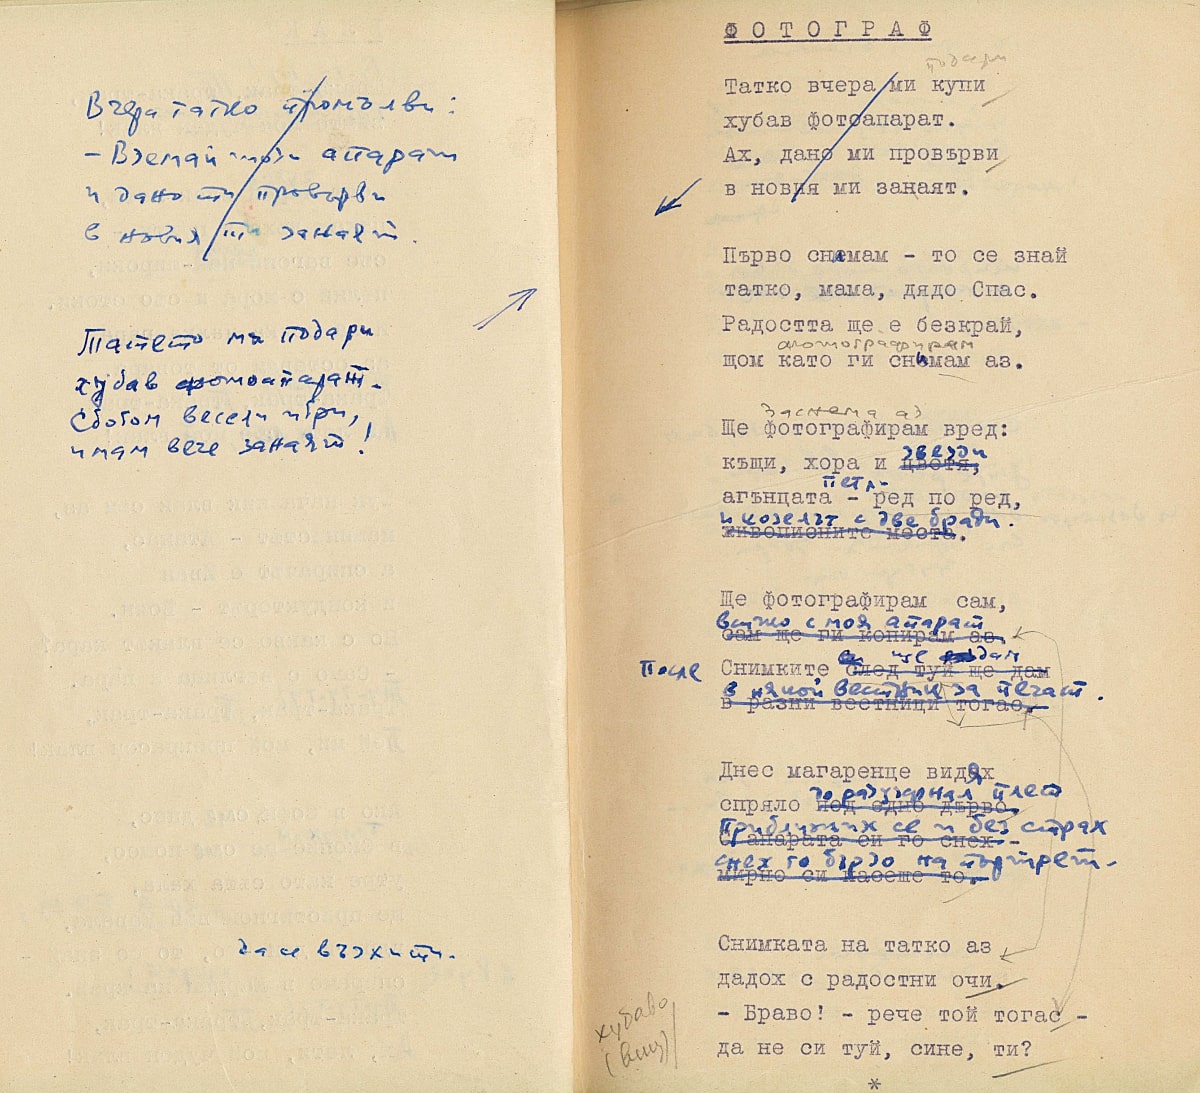 Вчера татко промълви:
– Вземай този апарат
и дано ти провърви
в новия ти занаят.
Татето ми подари
хубав фотоапарат.
Сбогом весели игри,
имам вече занаят!
да се възхити.
ФОТОГРАФ
подари
Татко вчера ми купи
хубав фотоапарат.
Ах, дано ми провърви
в новия ми занаят.
Първо снимам - то се знай
татко, мама, дядо Спас.
Радостта ще е безкрай,
фотографирам
щом като ги снимам аз.
Заснема аз
Ще фотографирам вред:
звезди
къщи, хора и цветя,
петл-
агънцата - ред по ред,
и козелът с две бради.
живописните места.
Ще фотографирам сам,
всичко с моя апарат
сам ще ги копирам аз.
ще дам
После Снимките след туй ще дам
в някой вестник за печат.
в разни вестници тогаз.
Днес магаренце видях
до разцъфнал плет
спряло под едно дърво.
Приближих се и без страх
С апарата си го снех -
снех го бързо на портрет.
мирно си пасеше то.
Снимката на татко аз
дадох с радостни очи.
- Браво! - рече той тогаз -
да не си туй, сине, ти?
*
хубаво
(виц)